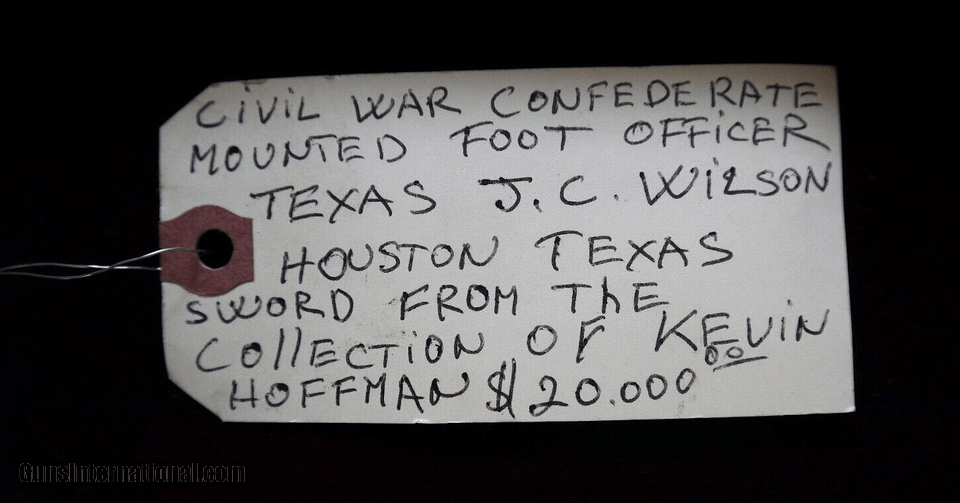 CiViL WAR CONFEDERATE
MOUNTED FOOT OFFiCER
TEXAS J.C. WiLSON
HOUSTON TEXAS
SWORD FROM ThE
COllECTiON OF KEViN
HOFFMAN $20.000 00
GunsInternational.com